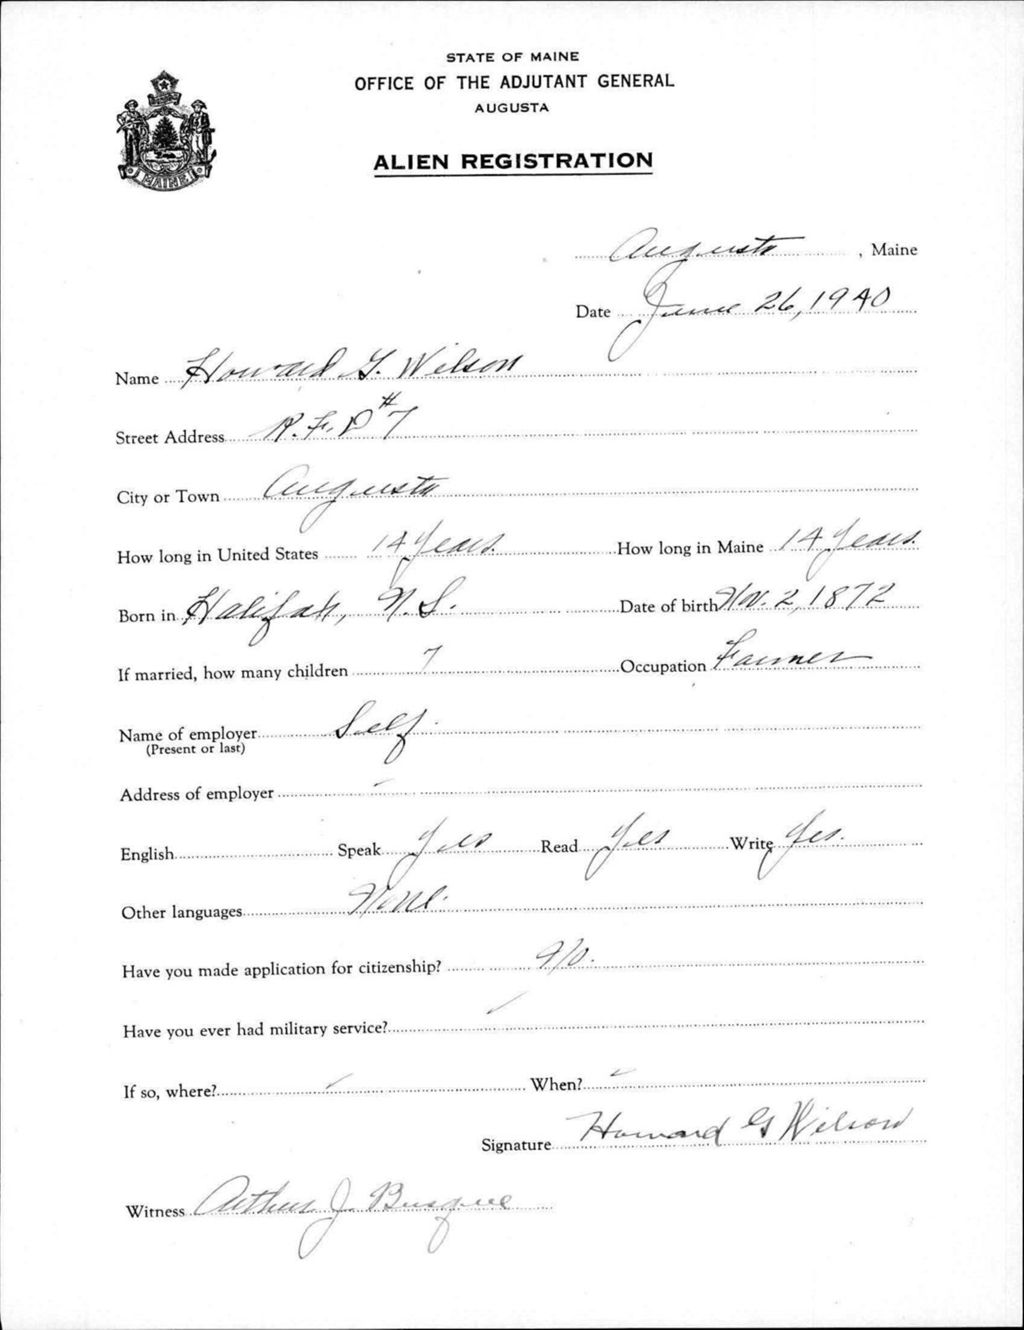 STATE OF MAINE
OFFICE OF THE ADJUTANT GENERAL
AUGUSTA
ALIEN REGISTRATION
MAINE
Augusta, Maine
Date June 26, 1940
Name Howard G. Wilson
Street Address R.F.D #7
City or Town Augusta
How long in United States 14 Years. How long in Maine 14 Years.
Born in Halifax, N.S. Date of birth Nov. 2, 1872
If married, how many children 7 Occupation Farmer
Name of employer Self.
(Present or last)
Address of employer
English Speak Yes Read Yes Write Yes.
Other languages None.
Have you made application for citizenship? No.
Have you ever had military service?
If so, where? When?
Signature Howard G Wilson
Witness Arthur J. Busque